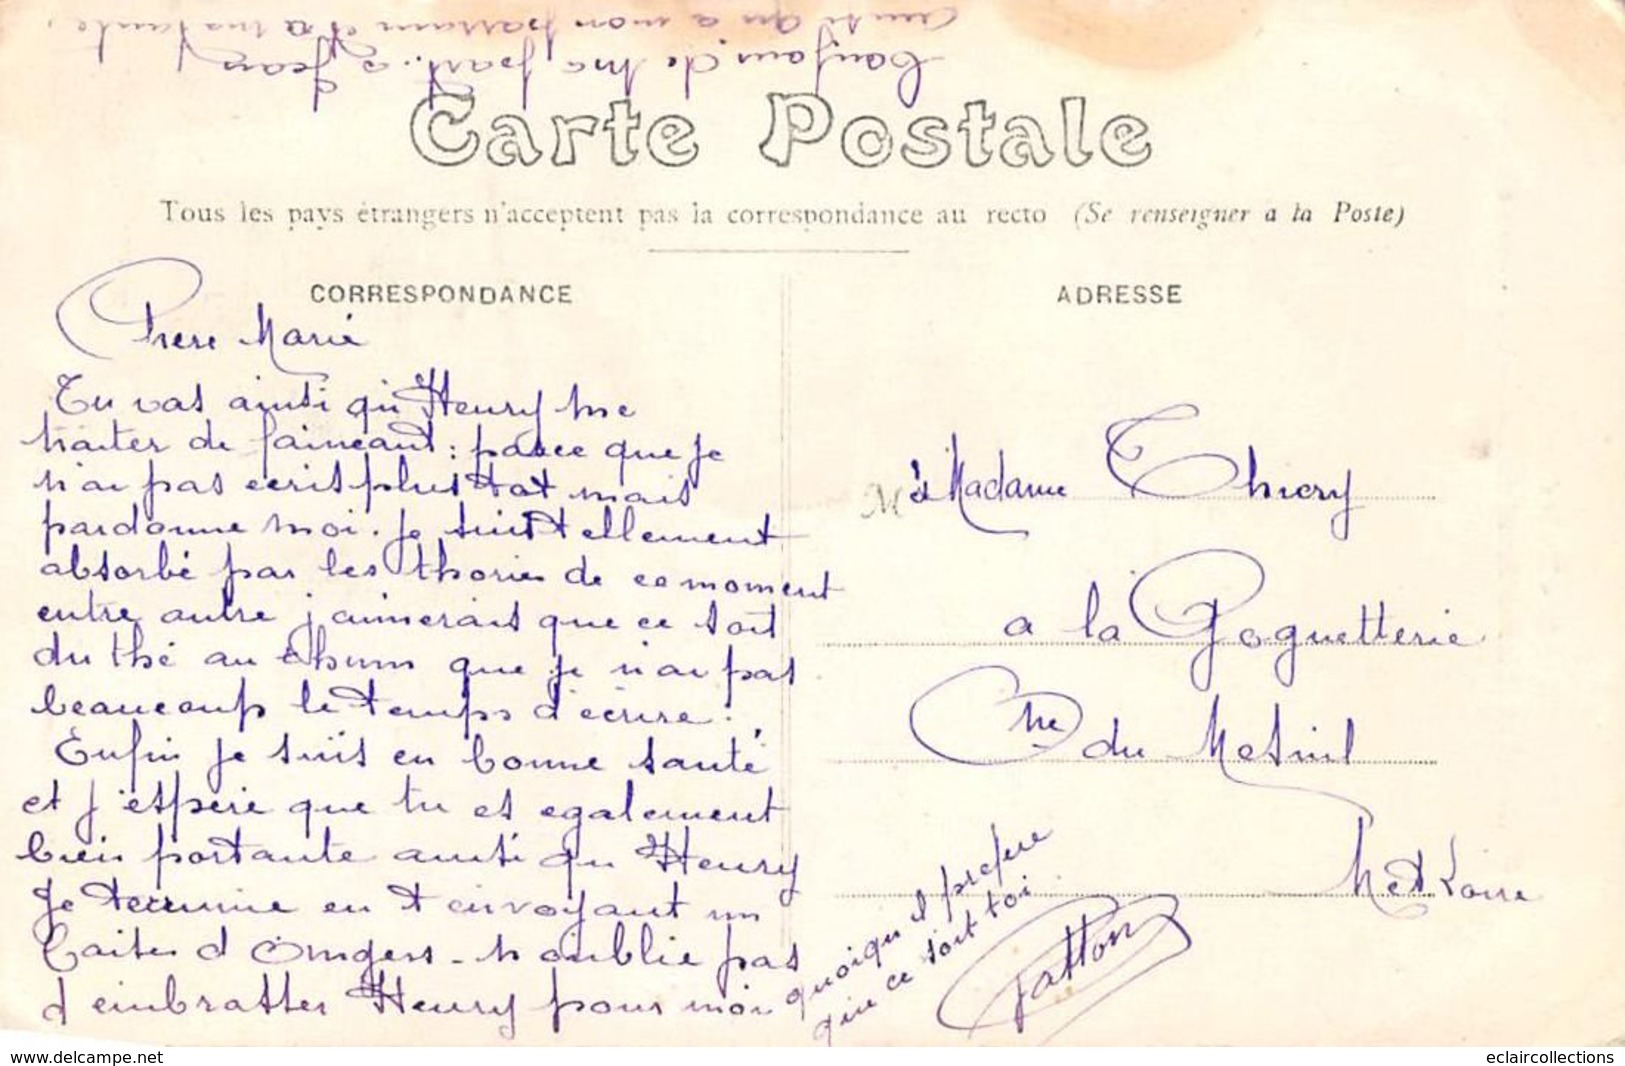 bonjour de ma part a Jean
ainsi qu a mon parrain et a ma tante.
Carte Postale
Tous les pays étrangers n'acceptent pas la correspondance au recto (Se renseigner a la Poste)
CORRESPONDANCE
Chere Marie
Tu vas ainsi qu Henry me
traiter de faineant : parce que je
n ai pas ecris plus tot mais
pardonne moi. je suis tellement
absorbé par les thories de ce moment
entre autre j aimerais que ce soit
du thé au rhum que je n ai pas
beaucoup le temps d'écrire.
Enfin je suis en bonne santé
et j'espere que tu es egalement
bien portante ainsi qu Henry
Je termine en t envoyant un
d Angers - n oublie pas
d embrasser Henry pour moi
quoiqu il prefere
que ce soit toi
Gatton
ADRESSE
M à Madame Thiery
a la Goguetterie
Cne du Mesnil
M et Loire
www.delcampe.net
eclaircollections